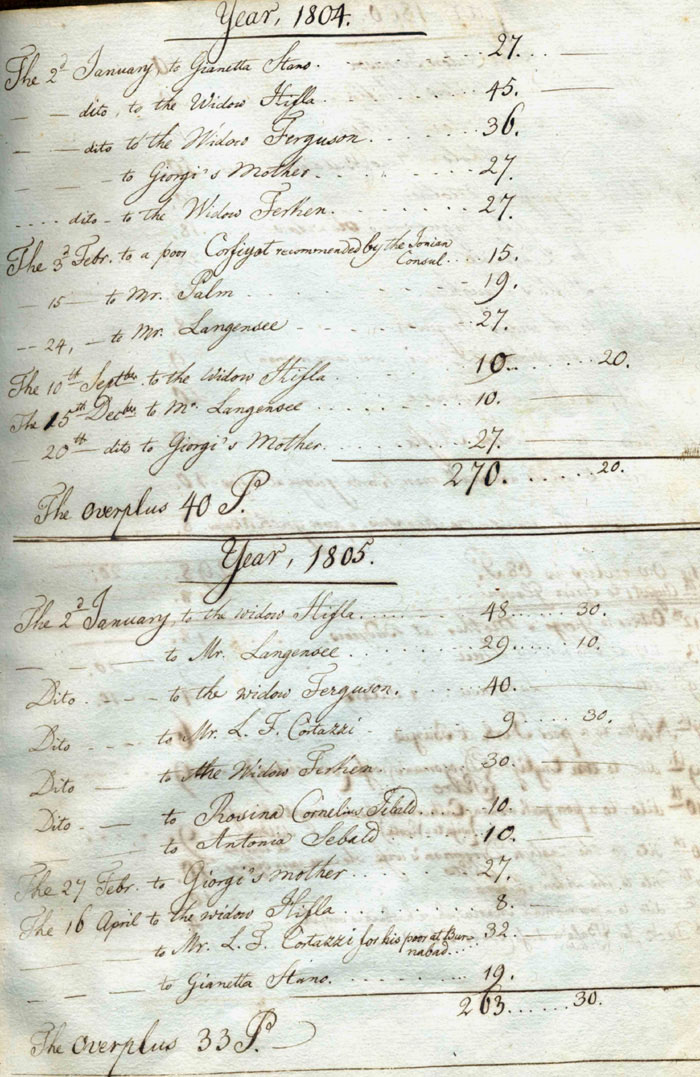 Year, 1804.
The 2d January, to Gianetta Stano. 27.
dito, to the Widow Hifla. 45.
dito to the Widow Ferguson. 36.
to Giorgi's Mother. 27.
dito - to the Widow Ferhen. 27.
The 3d Febr. to a poor Corfiyot recommended by the Ionian Consul. 15.
15 - to Mr. Palm 19.
24, - to Mr. Langensee 27.
The 10th Septber to the Widow Hifla. 10. 20.
The 15th Decber to Mr. Langensee 10.
20th dito to Giorgi's Mother. 27.
270. 20.
The overplus 40 P.
Year, 1805.
The 2d January, to the widow Hifla. 48. 30.
to Mr. Langensee 29. 10.
Dito to the widow Ferguson. 40.
Dito to Mr. L. F. Cortazzi. 9 30.
Dito to the Widow Ferhen. 30.
Dito to Rosina Cornelius Sebald. 10.
to Antonia Sebald 10.
The 27 Febr. to Giorgi's mother 27.
The 16 April to the widow Hifla 8.
to Mr. L. F. Cortazzi for his poor at Bur- 32.
nabad.
to Gianetta Stano. 19.
263. 30.
The overplus 33 P.